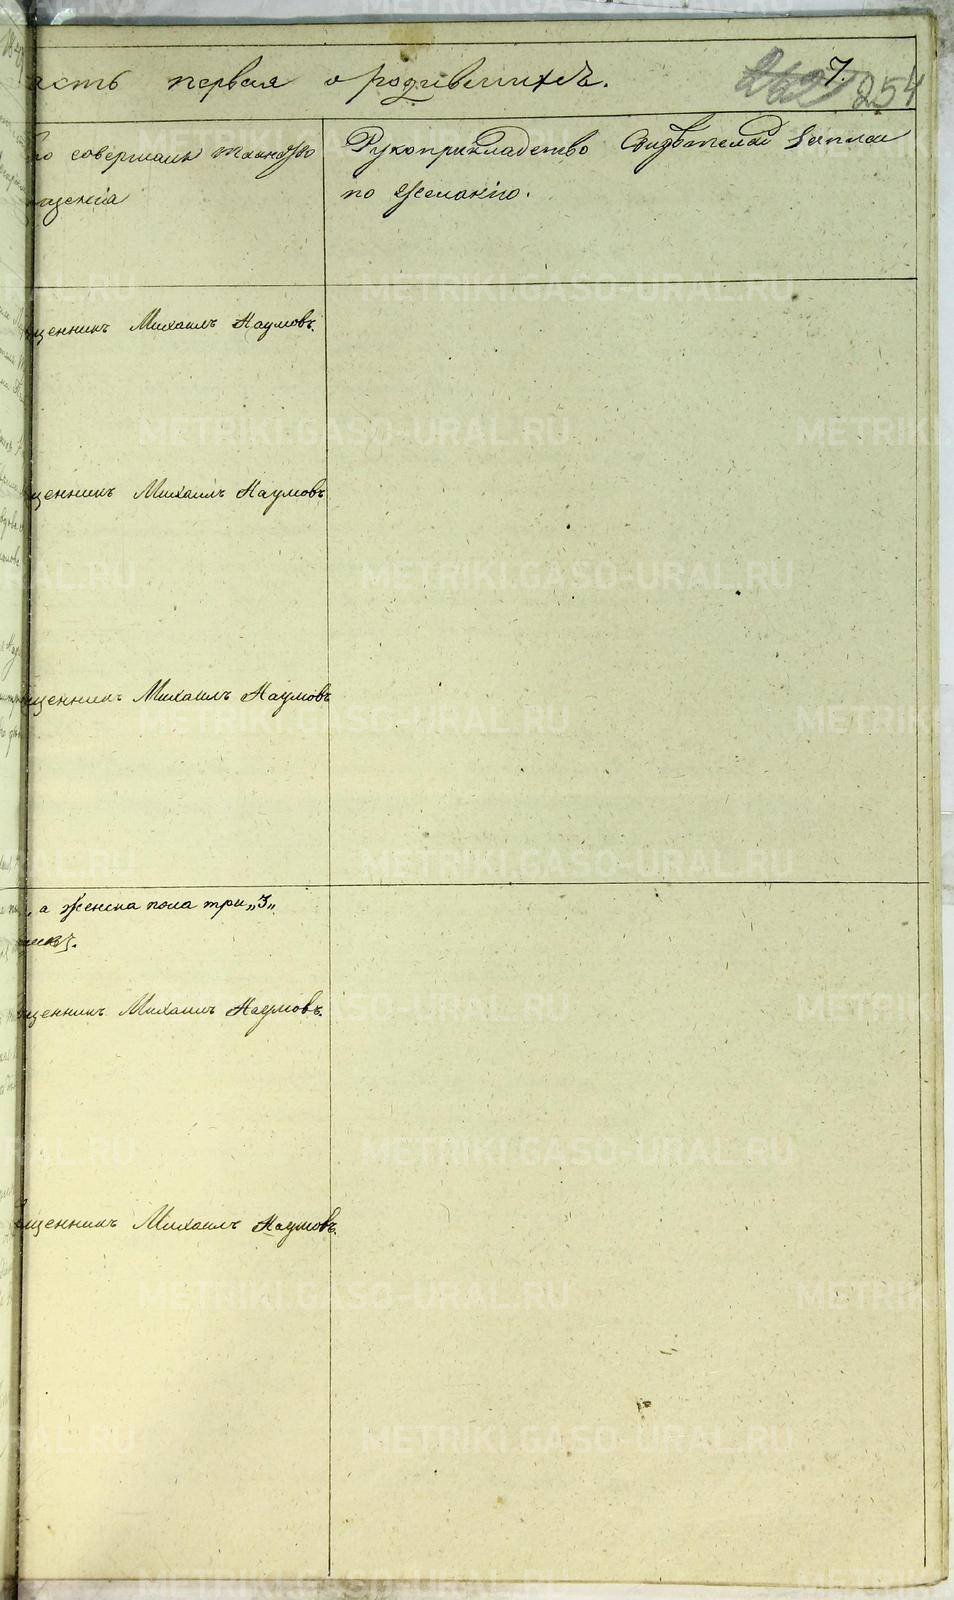 асть первая о родившихся. 7. 254
то совершалъ таинство
щенія
Рукоприкладство Свидѣтелей записи
по желанію.
щенникъ Михаилъ Наумовъ.
щенникъ Михаилъ Наумовъ
щенникъ Михаилъ Наумовъ
, а женска пола три „3„
щенникъ Михаилъ Наумовъ.
щенникъ Михаилъ Наумовъ.
METRIKI.GASO-URAL.RU